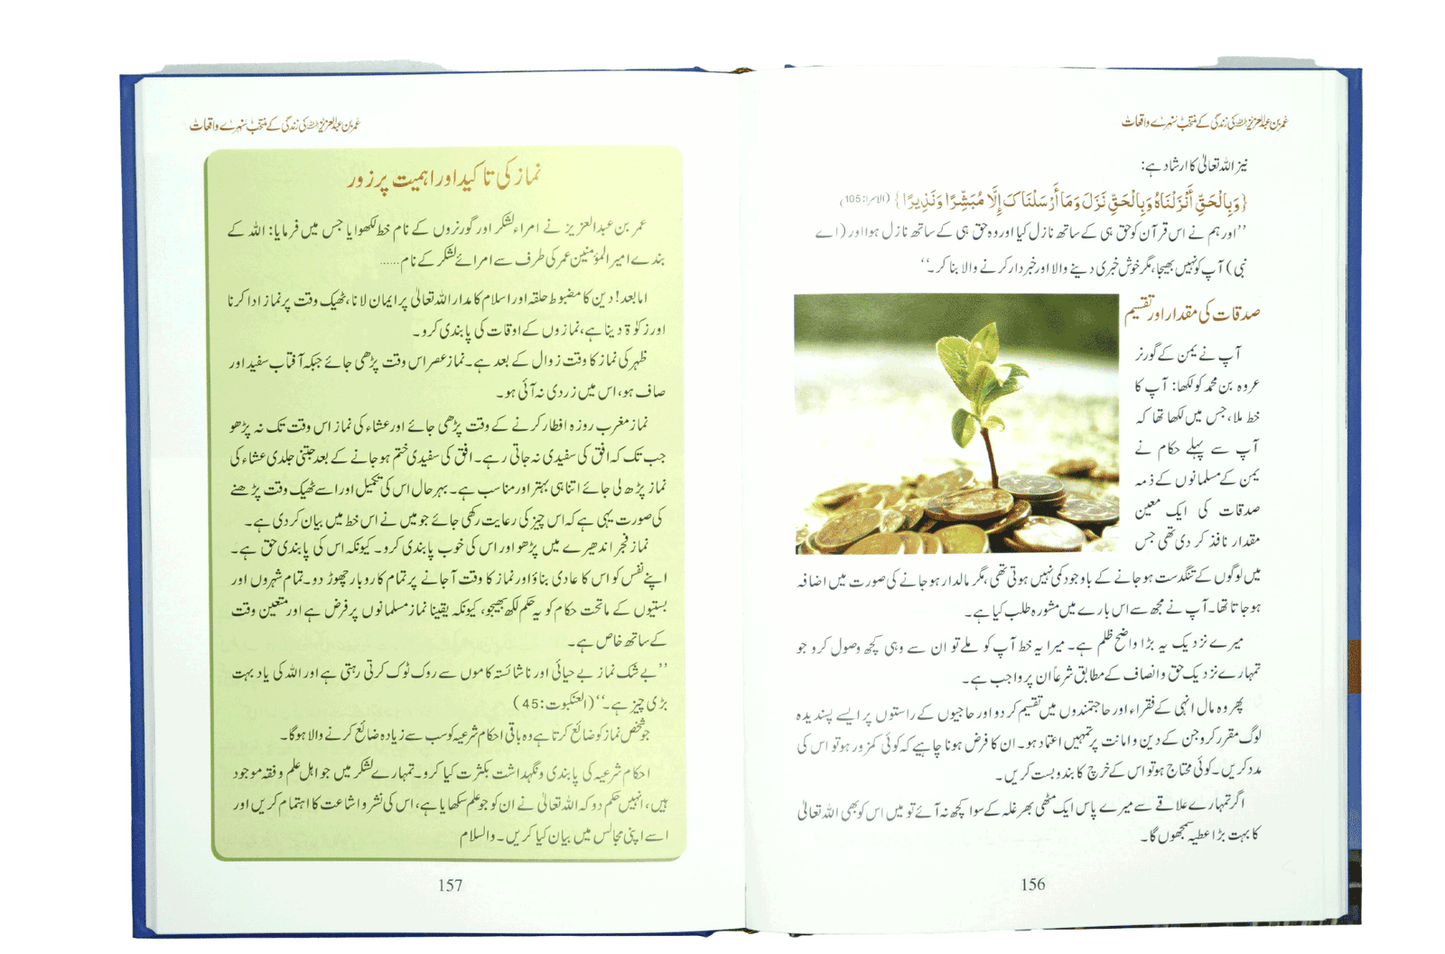 عمر بن عبدالعزیز رحمہ اللہ کی زندگی کے منتخب سنہرے واقعات
نیز اللہ تعالیٰ کا ارشاد ہے:
{وَبِالْحَقِّ أَنْزَلْنَاهُ وَبِالْحَقِّ نَزَلَ وَمَا أَرْسَلْنَاكَ إِلَّا مُبَشِّرًا وَنَذِيرًا} (الاسراء:105)
’’اور ہم نے اس قرآن کو حق ہی کے ساتھ نازل کیا اور وہ حق ہی کے ساتھ نازل ہوا اور (اے
نبی) آپ کو نہیں بھیجا، مگر خوش خبری دینے والا اور خبردار کرنے والا بنا کر۔‘‘
صدقات کی مقدار اور تقسیم
آپ نے یمن کے گورنر
عروہ بن محمد کو لکھا: آپ کا
خط ملا، جس میں لکھا تھا کہ
آپ سے پہلے حکام نے
یمن کے مسلمانوں کے ذمہ
صدقات کی ایک معین
مقدار نافذ کر دی تھی جس
میں لوگوں کے تنگدست ہو جانے کے باوجود کمی نہیں ہوتی تھی، مگر مالدار ہو جانے کی صورت میں اضافہ
ہو جاتا تھا۔ آپ نے مجھ سے اس بارے میں مشورہ طلب کیا ہے۔
میرے نزدیک یہ بڑا واضح ظلم ہے۔ میرا یہ خط آپ کو ملے تو ان سے وہی کچھ وصول کرو جو
تمہارے نزدیک حق و انصاف کے مطابق شرعاً ان پر واجب ہے۔
پھر وہ مال انہی کے فقراء اور حاجتمندوں میں تقسیم کر دو اور حاجیوں کے راستوں پر ایسے پسندیدہ
لوگ مقرر کرو جن کے دین و امانت پر تمہیں اعتماد ہو۔ ان کا فرض ہونا چاہیے کہ کوئی کمزور ہو تو اس کی
مدد کریں۔ کوئی محتاج ہو تو اس کے خرچ کا بندوبست کریں۔
اگر تمہارے علاقے سے میرے پاس ایک مٹھی بھر غلہ کے سوا کچھ نہ آئے تو میں اس کو بھی اللہ تعالیٰ
کا بہت بڑا عطیہ سمجھوں گا۔
156
عمر بن عبدالعزیز رحمہ اللہ کی زندگی کے منتخب سنہرے واقعات
نماز کی تاکید اور اہمیت پر زور
عمر بن عبدالعزیز نے امراء لشکر اور گورنروں کے نام خط لکھوایا جس میں فرمایا: اللہ کے
بندے امیر المؤمنین عمر کی طرف سے امرائے لشکر کے نام......
اما بعد! دین کا مضبوط حلقہ اور اسلام کا مدار اللہ تعالیٰ پر ایمان لانا، ٹھیک وقت پر نماز ادا کرنا
اور زکوٰۃ دینا ہے، نمازوں کے اوقات کی پابندی کرو۔
ظہر کی نماز کا وقت زوال کے بعد ہے۔ نماز عصر اس وقت پڑھی جائے جبکہ آفتاب سفید اور
صاف ہو، اس میں زردی نہ آئی ہو۔
نماز مغرب روزہ افطار کرنے کے وقت پڑھی جائے اور عشاء کی نماز اس وقت تک نہ پڑھو
جب تک کہ افق کی سفیدی نہ جاتی رہے۔ افق کی سفیدی ختم ہو جانے کے بعد جتنی جلدی عشاء کی
نماز پڑھ لی جائے اتنا ہی بہتر اور مناسب ہے۔ بہر حال اس کی تکمیل اور اسے ٹھیک وقت پڑھنے
کی صورت یہی ہے کہ اس چیز کی رعایت رکھی جائے جو میں نے اس خط میں بیان کر دی ہے۔
نماز فجر اندھیرے میں پڑھو اور اس کی خوب پابندی کرو۔ کیونکہ اس کی پابندی حق ہے۔
اپنے نفس کو اس کا عادی بناؤ اور نماز کا وقت آ جانے پر تمام کاروبار چھوڑ دو۔ تمام شہروں اور
بستیوں کے ماتحت حکام کو یہ حکم لکھ بھیجو، کیونکہ یقیناً نماز مسلمانوں پر فرض ہے اور متعین وقت
کے ساتھ خاص ہے۔
’’بے شک نماز بے حیائی اور ناشائستہ کاموں سے روک ٹوک کرتی رہتی ہے اور اللہ کی یاد بہت
بڑی چیز ہے۔‘‘ (العنکبوت:45)
جو شخص نماز کو ضائع کرتا ہے وہ باقی احکام شرعیہ کو سب سے زیادہ ضائع کرنے والا ہوگا۔
احکام شرعیہ کی پابندی و نگہداشت بکثرت کیا کرو۔ تمہارے لشکر میں جو اہل علم و فقہ موجود
ہیں، انہیں حکم دو کہ اللہ تعالیٰ نے ان کو جو علم سکھایا ہے، اس کی نشر و اشاعت کا اہتمام کریں اور
اسے اپنی مجالس میں بیان کیا کریں۔ والسلام
157